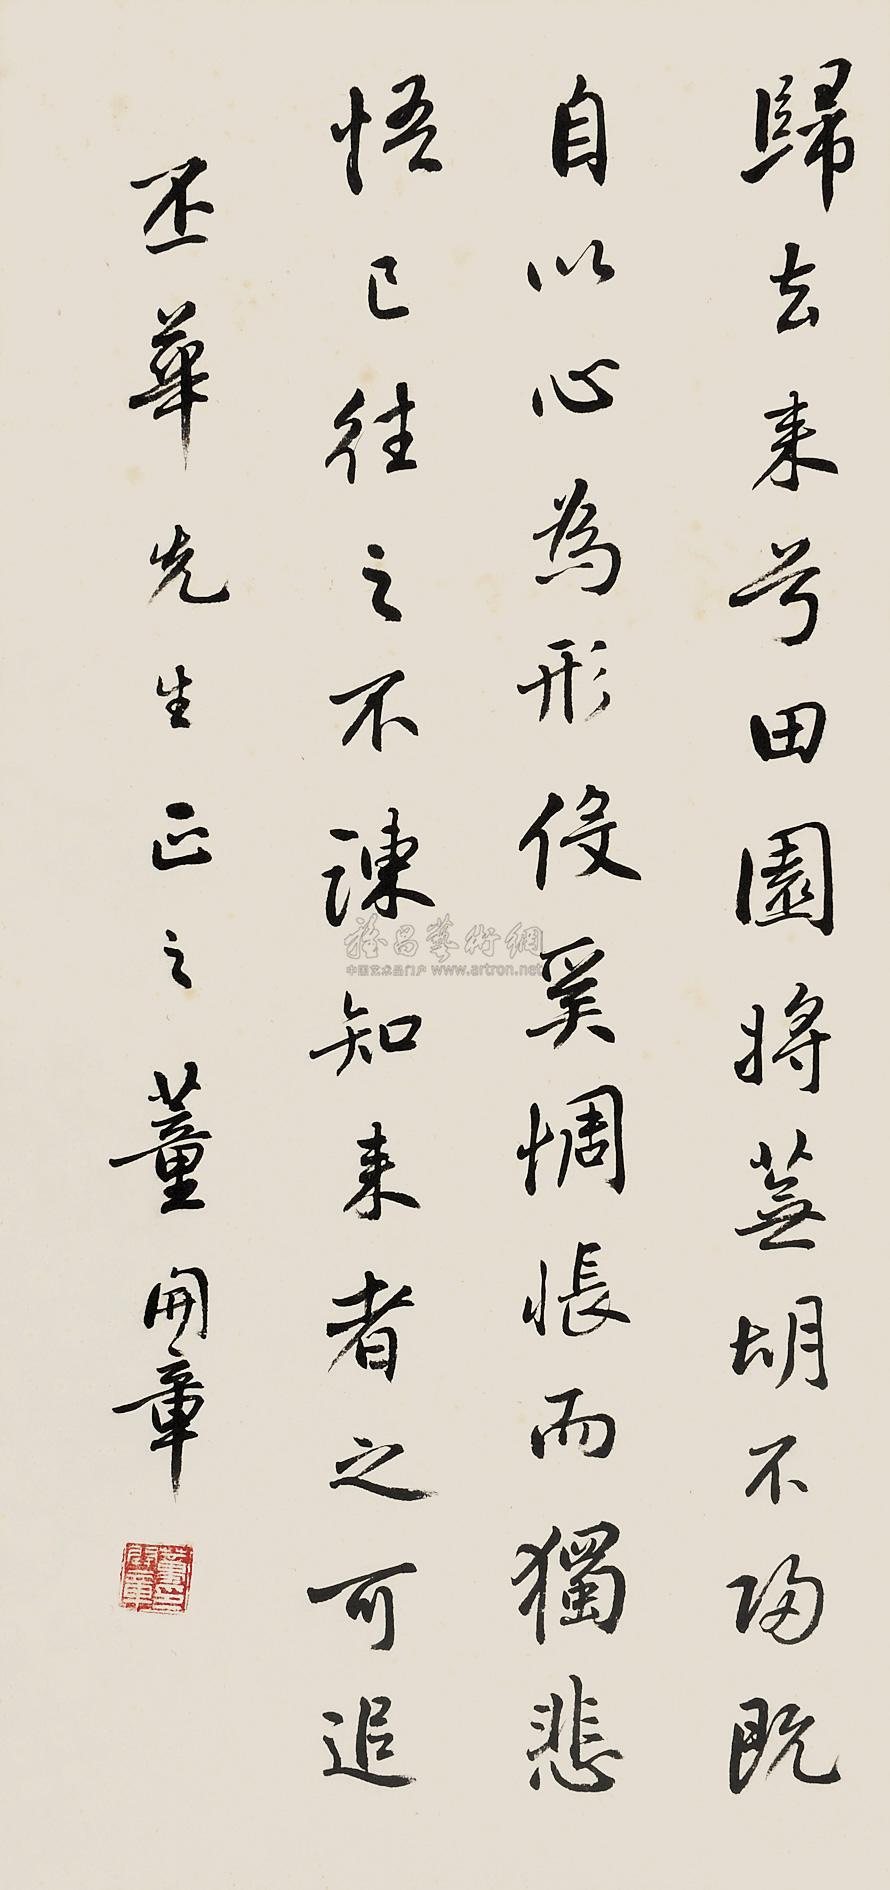 歸去來兮田園將蕪胡不歸既
自以心為形役奚惆悵而獨悲
悟已往之不諫知来者之可追
丕華先生正之董開章
雅昌藝術網
中国艺术品门户 www.artron.net